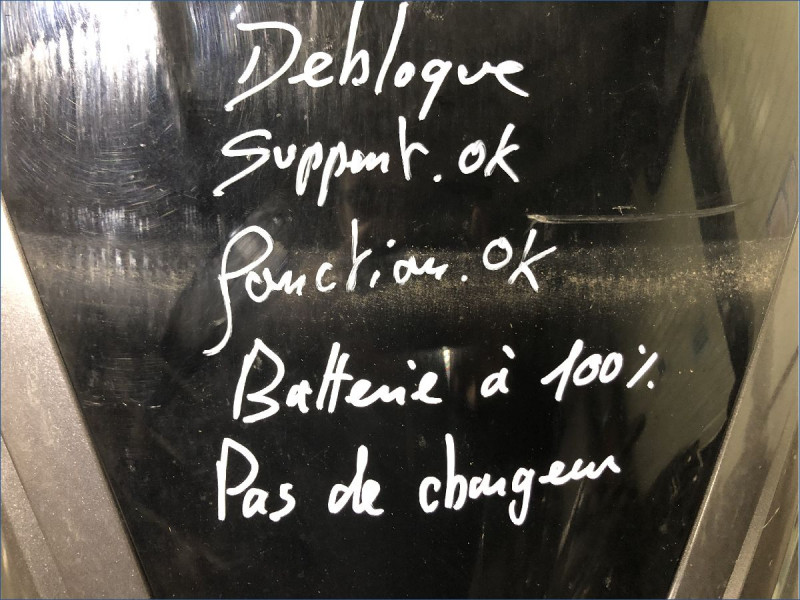 Debloque
Support. ok
fonction. OK
Batterie à 100%
Pas de chargeur